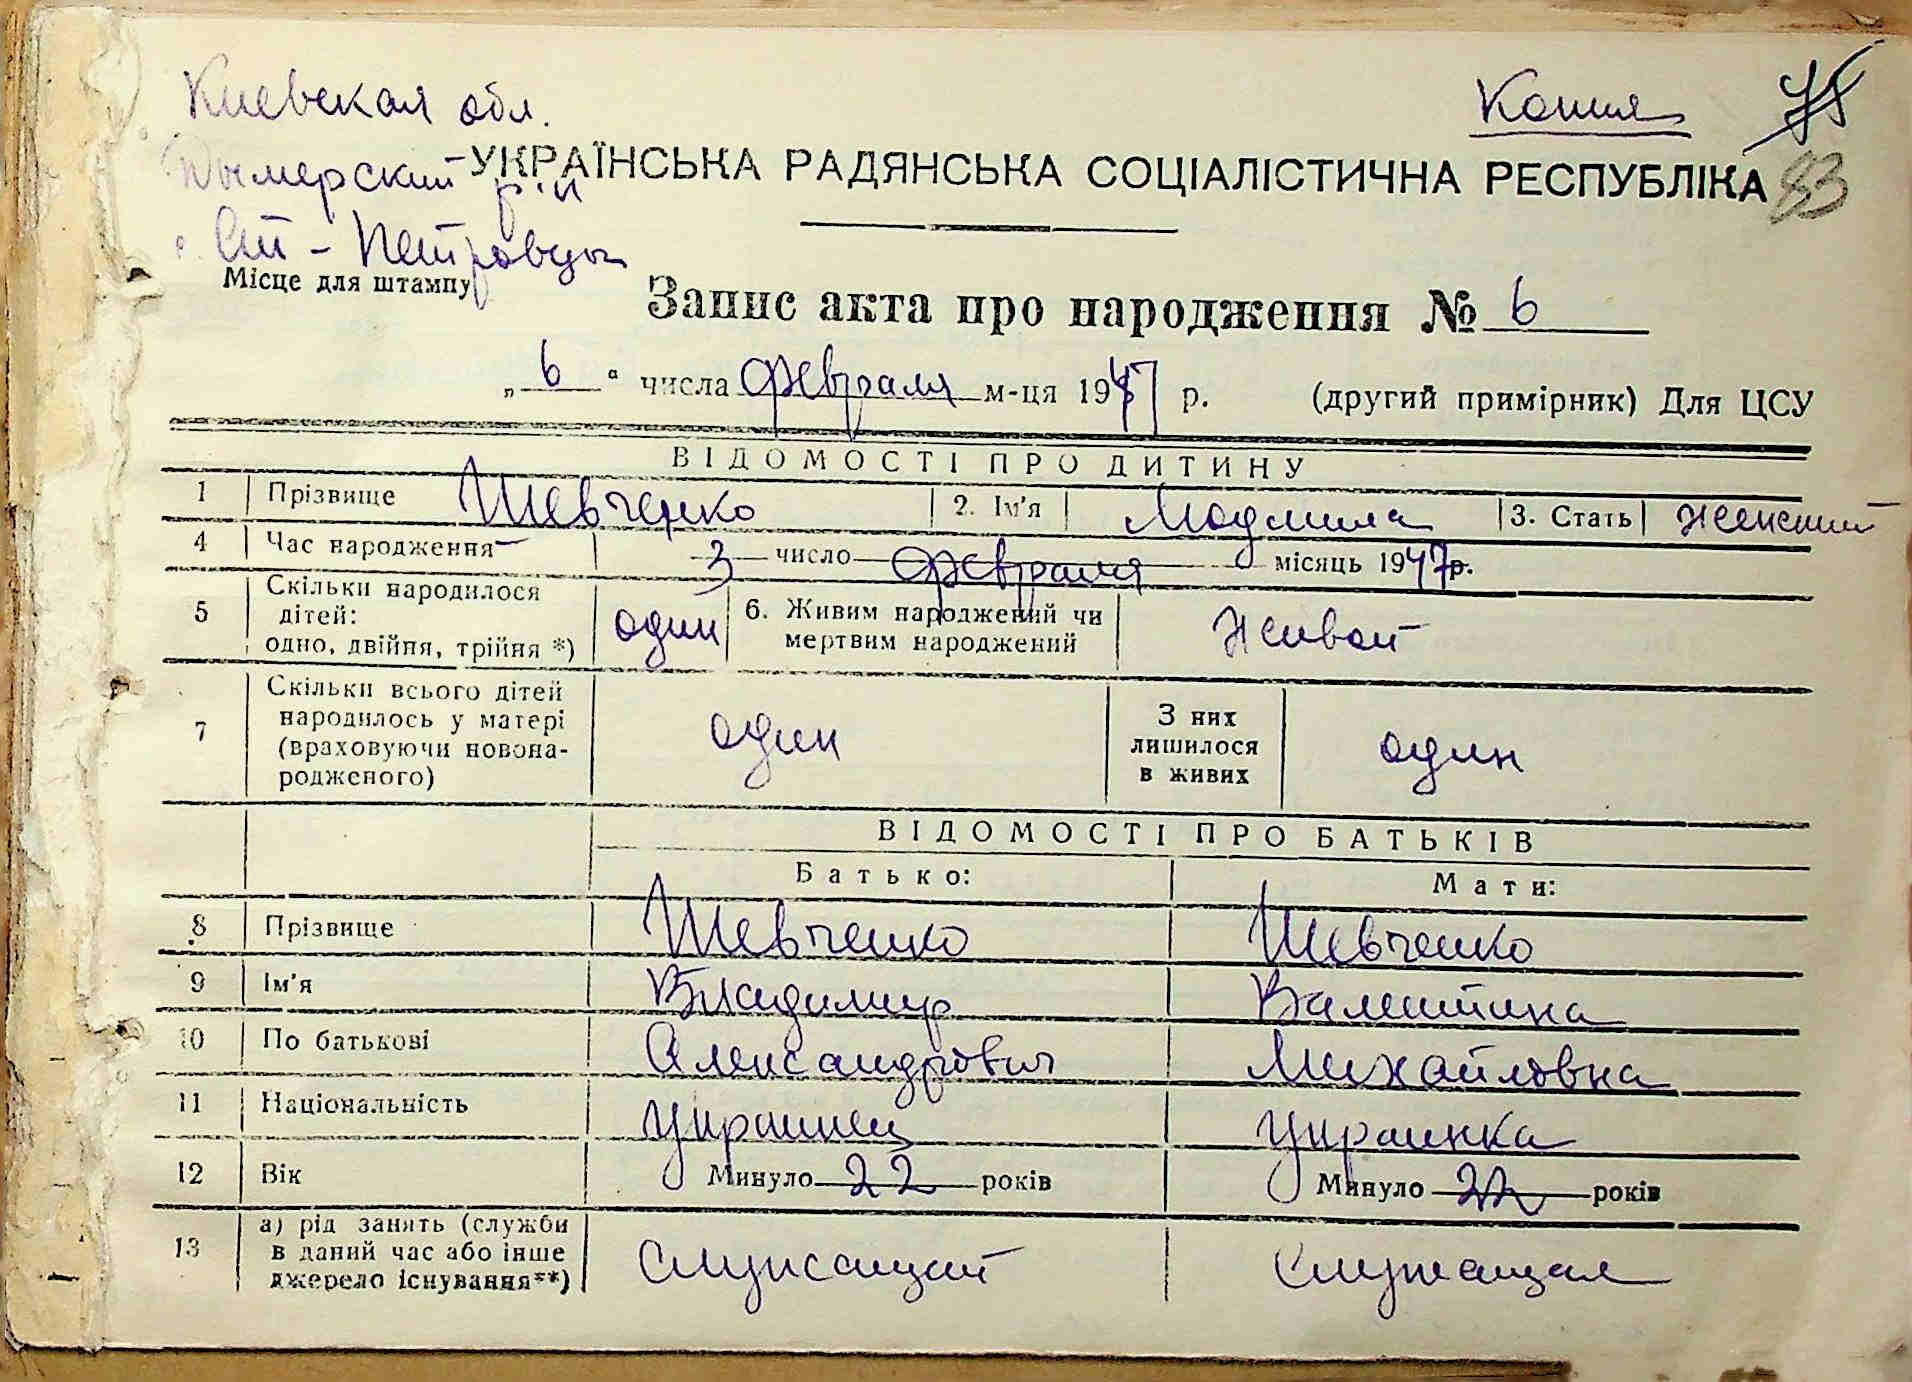 Киевская обл.
Копия 75
Дымерский р-н
УКРАЇНСЬКА РАДЯНСЬКА СОЦІАЛІСТИЧНА РЕСПУБЛІКА 83
с. Ст-Петровцы
Місце для штампу
Запис акта про народження № 6
„6“ числа февраля м-ця 1947 р. (другий примірник) Для ЦСУ
ВІДОМОСТІ ПРО ДИТИНУ
1 Прізвище Шевченко 2. Ім'я Людмила 3. Стать женский
4 Час народження 3 число февраля місяць 1947 р.
5 Скільки народилося
дітей:
одно, двійня, трійня *) один
6. Живим народжений чи
мертвим народжений живой
7 Скільки всього дітей
народилось у матері
(враховуючи новона-
родженого) один
З них
лишилося
в живих один
ВІДОМОСТІ ПРО БАТЬКІВ
Батько: Мати:
8 Прізвище Шевченко Шевченко
9 Ім'я Владимир Валентина
10 По батькові Александрович Михайловна
11 Національність украинец украинка
12 Вік Минуло 22 років Минуло 22 років
13 а) рід занять (служби
в даний час або інше
джерело існування**) служащий служащая